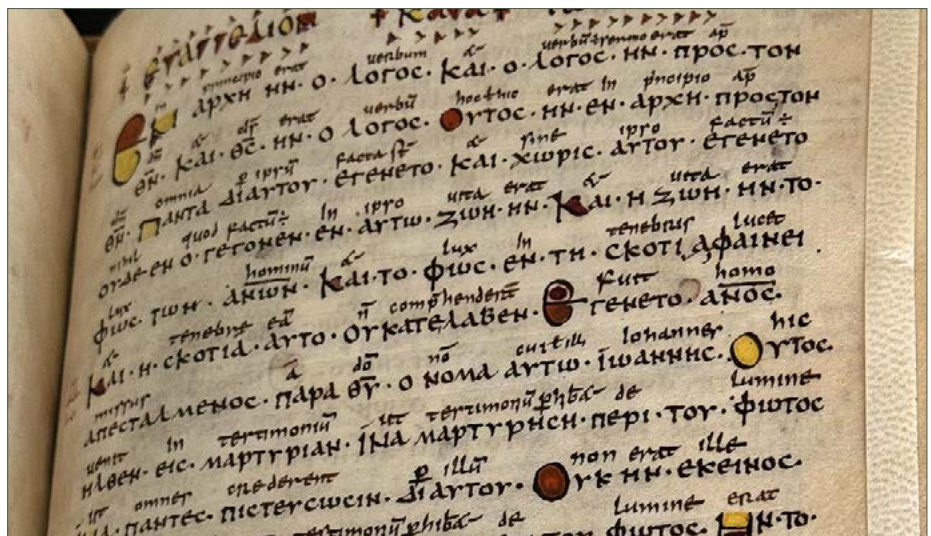 † ΕΥΑΓΓΕΛΙΟΝ † ΚΑΤΑ †
in principio erat uerbum & uerbū erat ap̄
ΕΝ ΑΡΧΗ ΗΝ · Ο · ΛΟΓΟC · ΚΑΙ · Ο · ΛΟΓΟC · ΗΝ · ΠΡΟC · ΤΟΝ
dm̄ & dſ̄ erat uerbū hoc erat in p̄ncipio ap̄
Θ̅Ν̅ · ΚΑΙ · Θ̅C̅ · ΗΝ · Ο ΛΟΓΟC · ΟΥΤΟC · ΗΝ · ΕΝ · ΑΡΧΗ · ΠΡΟC ΤΟΝ
dm̄ omnia ꝑ ipsū facta st̄ & sine ipso factū ÷
Θ̅Ν̅ · ΠΑΝΤΑ ΔΙΑΥΤΟΥ · ΕΓΕΝΕΤΟ · ΚΑΙ · ΧΩΡΙC · ΑΥΤΟΥ · ΕΓΕΝΕΤΟ
nihil quod factū ÷ In ipso uita erat & uita erat
ΟΥΔΕ · ΕΝ Ο · ΓΕΓΟΝΕΝ · ΕΝ · ΑΥΤΩ · ΖΩΗ · ΗΝ · ΚΑΙ · Η ΖΩΗ · ΗΝ · ΤΟ ·
lux hominū & lux in tenebris lucet
ΦΩC · ΤΩΝ · Α̅Ν̅Ω̅Ν̅ · ΚΑΙ · ΤΟ · ΦΩC · ΕΝ · ΤΗ · CΚΟΤΙΑ ΦΑΙΝΕΙ
& tenebre eā n̄ comphendert̄ fuit homo
ΚΑΙ · Η · CΚΟΤΙΑ · ΑΥΤΟ · ΟΥΚΑΤΕΛΑΒΕΝ · ΕΓΕΝΕΤΟ · Α̅Ν̅Ο̅C̅ ·
missus a dō nō cui illi Iohannes hic
ΑΠΕCΤΑΛΜΕΝΟC · ΠΑΡΑ Θ̅Υ̅ · Ο ΝΟΜΑ ΑΥΤΩ · ΙΩΑΝΝΗC · ΟΥΤΟC ·
uenit in testimoniū ut testimoniū ꝑhib& de lumine
ΗΛΘΕΝ · ΕΙC · ΜΑΡΤΥΡΙΑΝ · ΙΝΑ ΜΑΡΤΥΡΗCΗ · ΠΕΡΙ · ΤΟΥ · ΦΩΤΟC
ut omnes crederent ꝑ illū non erat ille
ΙΝΑ · ΠΑΝΤΕC · ΠΙCΤΕΥCΩCΙΝ · ΔΙΑΥΤΟΥ · ΟΥΚ ΗΝ · ΕΚΕΙΝΟC ·
testimoniū ꝑhib& de lumine erat
ΦΩΤΟC · ΗΝ · ΤΟ ·